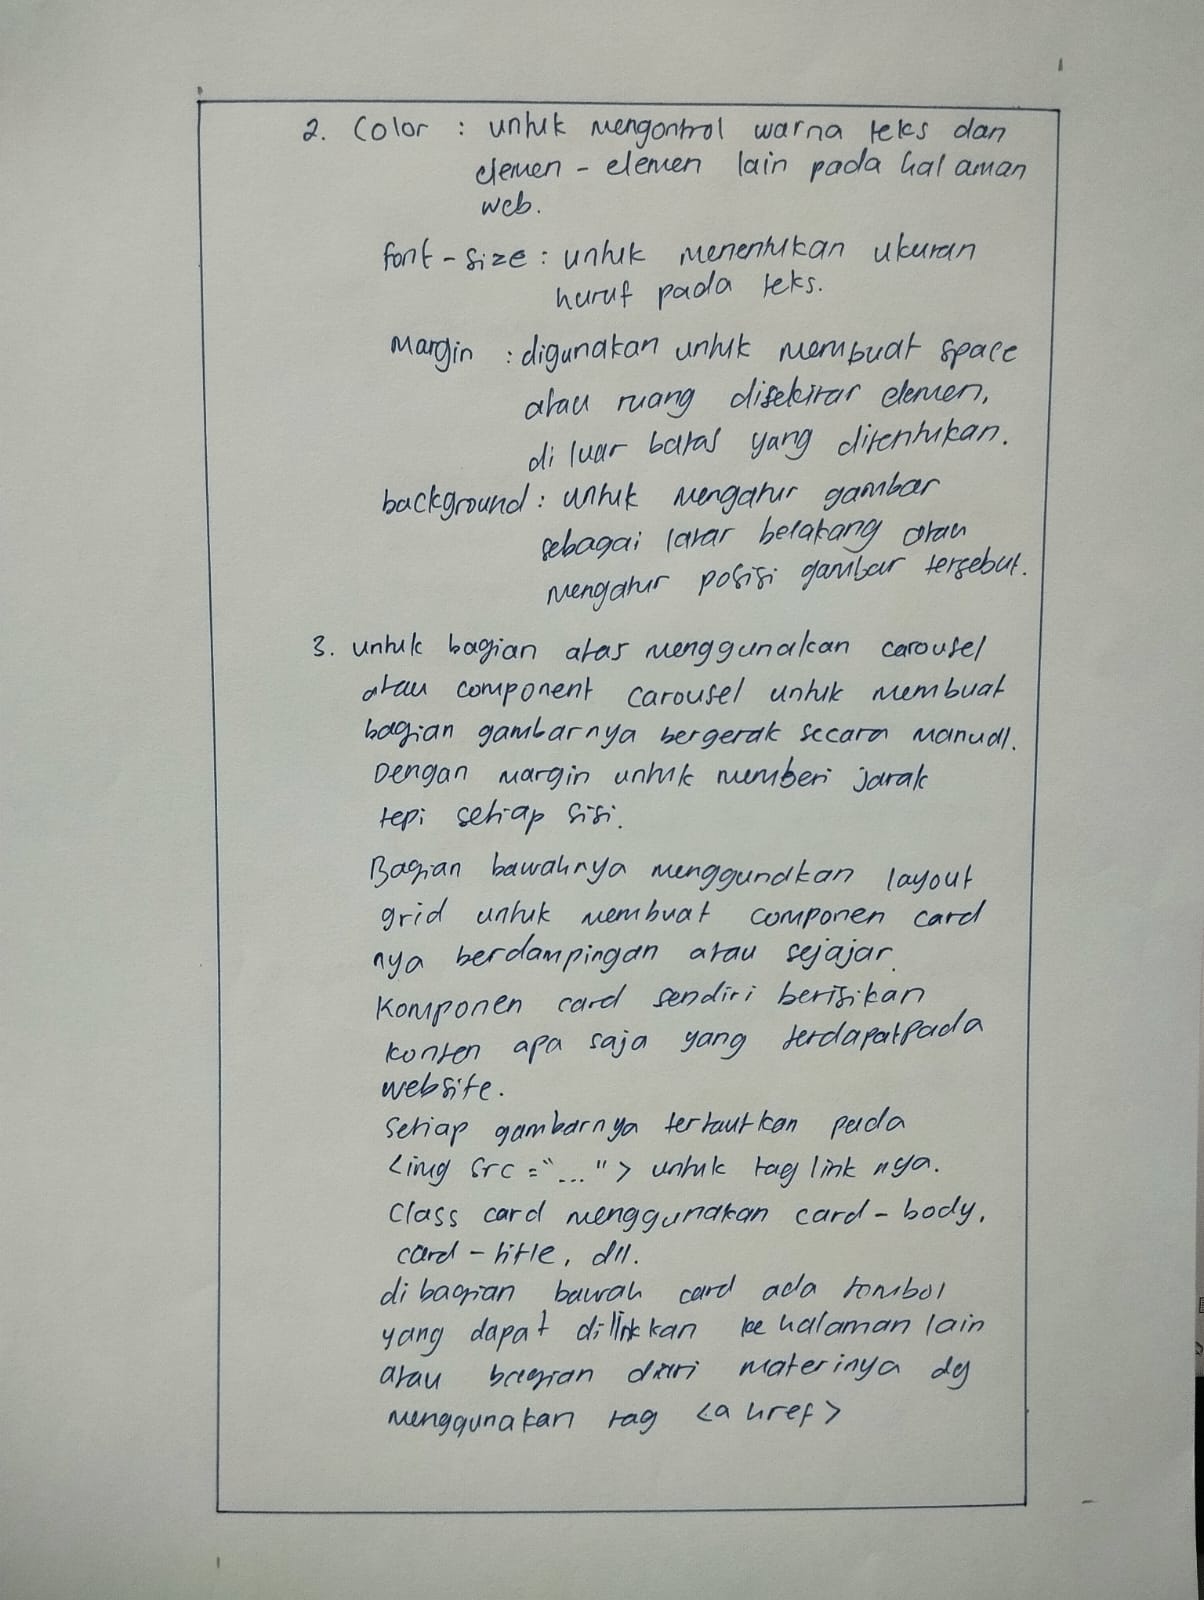 2. Color : untuk mengontrol warna teks dan
elemen - elemen lain pada halaman
web.
font - size : untuk menentukan ukuran
huruf pada teks.
Margin : digunakan untuk membuat space
atau ruang disekitar elemen,
di luar batas yang ditentukan.
background : untuk mengatur gambar
sebagai latar belakang atau
mengatur posisi gambar tersebut.
3. untuk bagian atas menggunakan carousel
atau component carousel untuk membuat
bagian gambarnya bergerak secara manual.
Dengan margin untuk memberi jarak
tepi setiap sisi.
Bagian bawahnya menggunakan layout
grid untuk membuat componen card
nya berdampingan atau sejajar.
Komponen card sendiri berisikan
konten apa saja yang terdapat pada
website.
Setiap gambarnya tertautkan pada
<img src = "..." > untuk tag link nya.
Class card menggunakan card - body,
card - title, dll.
di bagian bawah card ada tombol
yang dapat dilinkkan ke halaman lain
atau bagian dari materinya dg
menggunakan tag <a href>